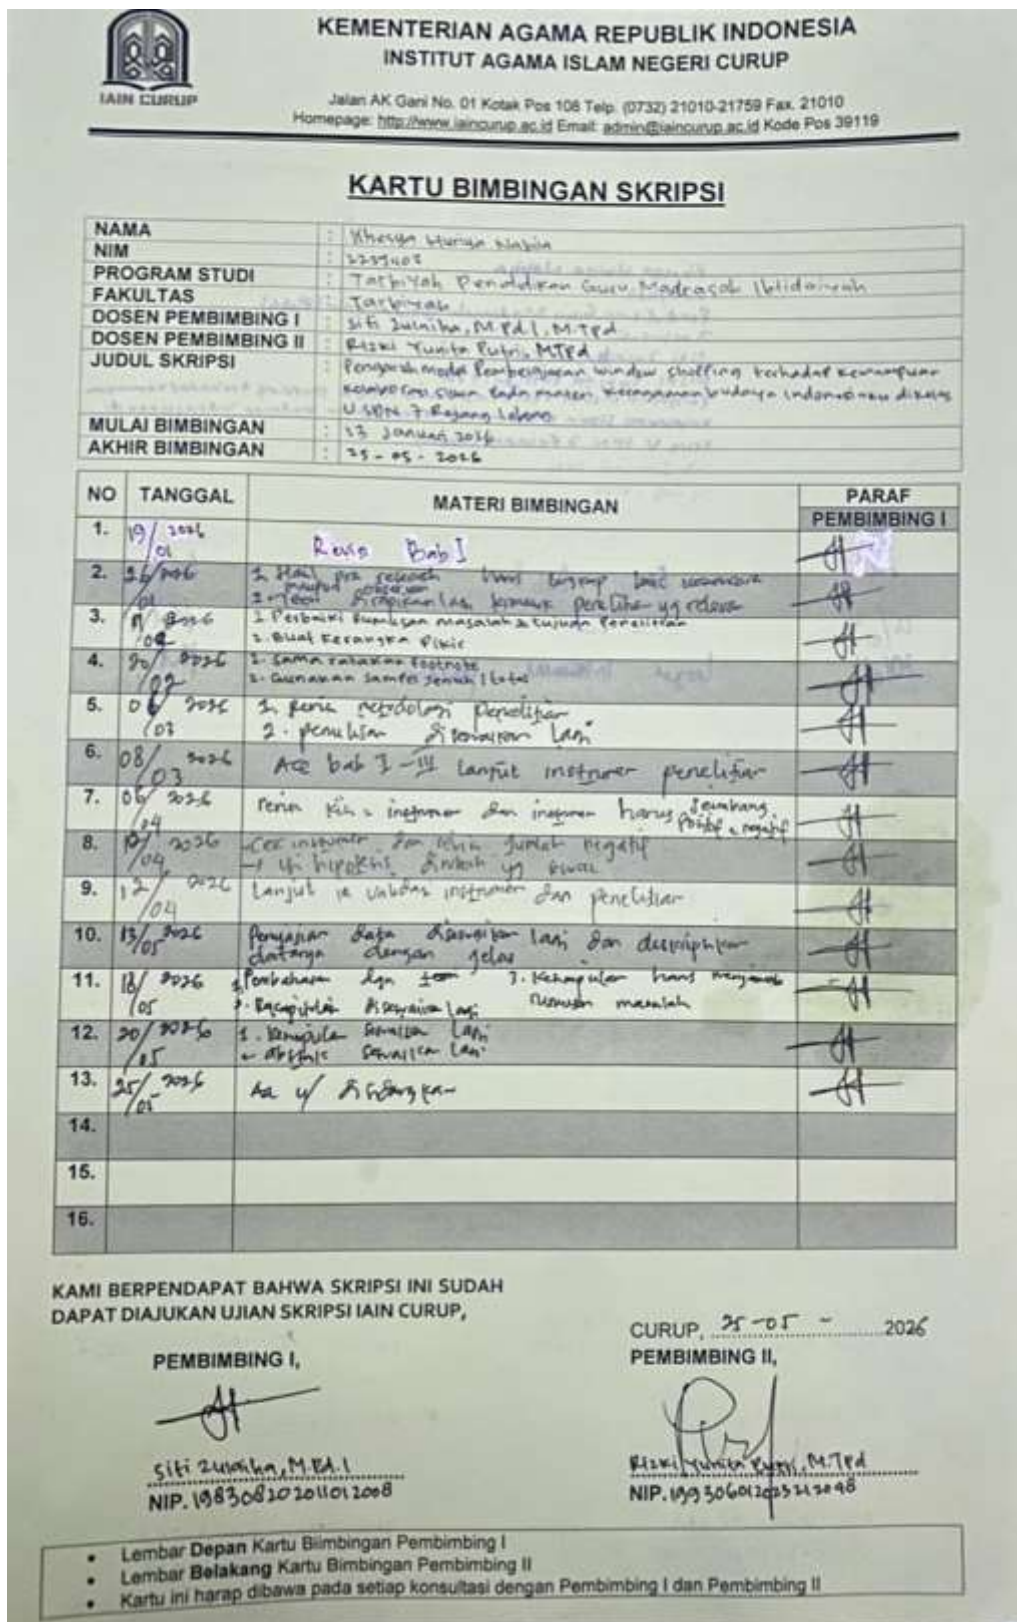 KEMENTERIAN AGAMA REPUBLIK INDONESIA
INSTITUT AGAMA ISLAM NEGERI CURUP
IAIN CURUP
Jalan AK Gani No. 01 Kotak Pos 108 Telp. (0732) 21010-21759 Fax. 21010
Homepage: http://www.iaincurup.ac.id Email: admin@iaincurup.ac.id Kode Pos 39119
KARTU BIMBINGAN SKRIPSI
NAMA : Khesya Nabila
NIM :
PROGRAM STUDI : Tarbiyah Pendidikan Guru Madrasah Ibtidaiyah
FAKULTAS : Tarbiyah
DOSEN PEMBIMBING I : Siti Zulaiha, M.Pd.I, M.TPd
DOSEN PEMBIMBING II : Rizki Yunita Putri, MTPd
JUDUL SKRIPSI : Pengaruh model Pembelajaran window shopping terhadap kemampuan
siswa Pada materi keragaman budaya Indonesiaku dikelas
V SDN 7 Rejang Lebong
MULAI BIMBINGAN : 13 Januari 2026
AKHIR BIMBINGAN : 25-05-2026
NO TANGGAL MATERI BIMBINGAN PARAF
PEMBIMBING I
1. 19/01 2026 Revisi Bab I
2. 26/01 2026 1. Hasil pra research wawancara
maupun observasi
2. penelitian yg relevan
3. 02 2026 1. Perbaiki Rumusan masalah & tujuan Penelitian
2. Buat Kerangka Pikir
4. 20/02 2026 1. Sama ratakan footnote
2. Gunakan sampel jenuh / total
5. 03 2026 1. Revisi metodologi Penelitian
2. penulisan disesuaikan lagi
6. 08/03 2026 Acc bab I - III lanjut instrumen penelitian
7. 06/04 2026 Revisi kisi2 instrumen dan instrumen harus seimbang
positif & negatif
8. 04 2026 Cek instrumen dan jumlah negatif
→ Uji hipotesis
9. 12/04 2026 Lanjut ke validasi instrumen dan penelitian
10. 13/05 2026 Penyajian data disesuaikan lagi dan deskripsikan
datanya dengan jelas
11. 18/05 2026 1. Pembahasan dgn teori 3. Kesimpulan harus menjawab
2. disesuaikan lagi rumusan masalah
12. 20/05 2026 1. Kesimpulan sesuaikan lagi
2. abstrak sesuaikan lagi
13. 25/05 2026 Acc u/ disidangkan
14.
15.
16.
KAMI BERPENDAPAT BAHWA SKRIPSI INI SUDAH
DAPAT DIAJUKAN UJIAN SKRIPSI IAIN CURUP,
CURUP, 25-05-2026
PEMBIMBING I,
PEMBIMBING II,
Siti Zulaiha, M.Pd.I
Rizki Yunita Putri, M.TPd
NIP. 198308202011012008
NIP. 199306012023212048
• Lembar Depan Kartu Biimbingan Pembimbing I
• Lembar Belakang Kartu Bimbingan Pembimbing II
• Kartu ini harap dibawa pada setiap konsultasi dengan Pembimbing I dan Pembimbing II